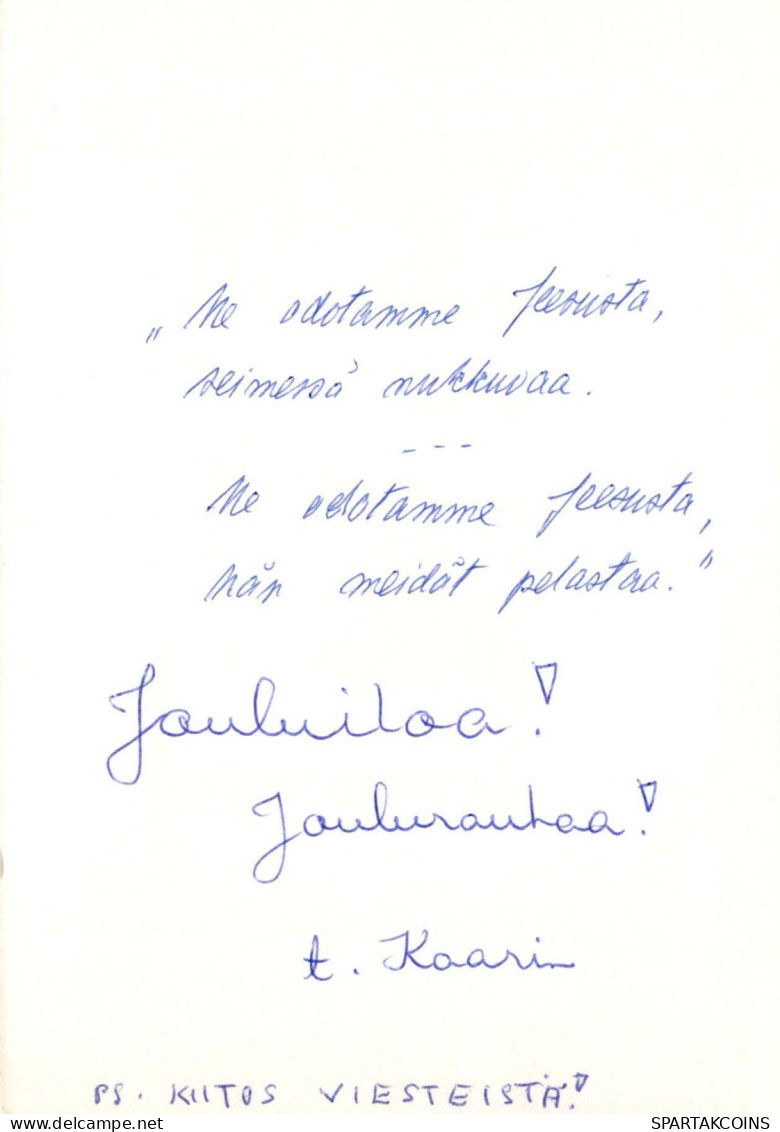 „Me odotamme Jeesusta,
seimessä nukkuvaa.
- - -
Me odotamme Jeesusta,
hän meidät pelastaa.”
Jouluiloa!
Joulurauhaa!
t. Kaarin
PS. KIITOS VIESTEISTÄ!
www.delcampe.net
SPARTAKCOINS